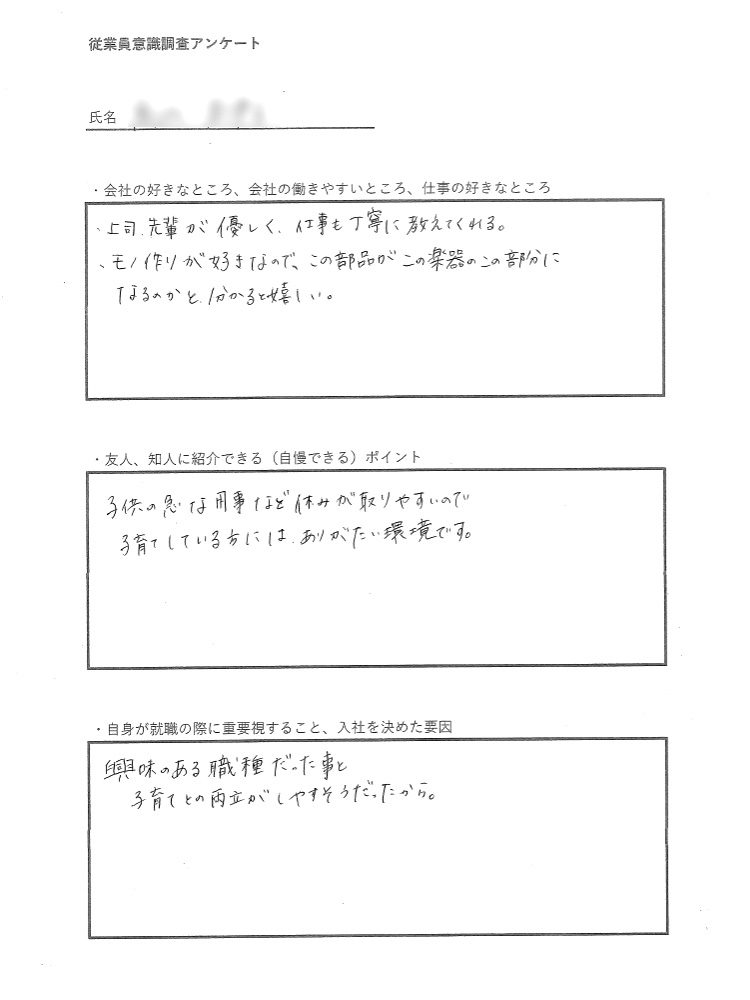 従業員意識調査アンケート
氏名
・会社の好きなところ、会社の働きやすいところ、仕事の好きなところ
・上司、先輩が優しく、仕事も丁寧に教えてくれる。
・モノ作りが好きなので、この部品がこの楽器のこの部分に
なるのかと、分かると嬉しい。
・友人、知人に紹介できる（自慢できる）ポイント
子供の急な用事など休みが取りやすいので
子育てしている方には、ありがたい環境です。
・自身が就職の際に重要視すること、入社を決めた要因
興味のある職種だった事と
子育てとの両立がしやすそうだったから。